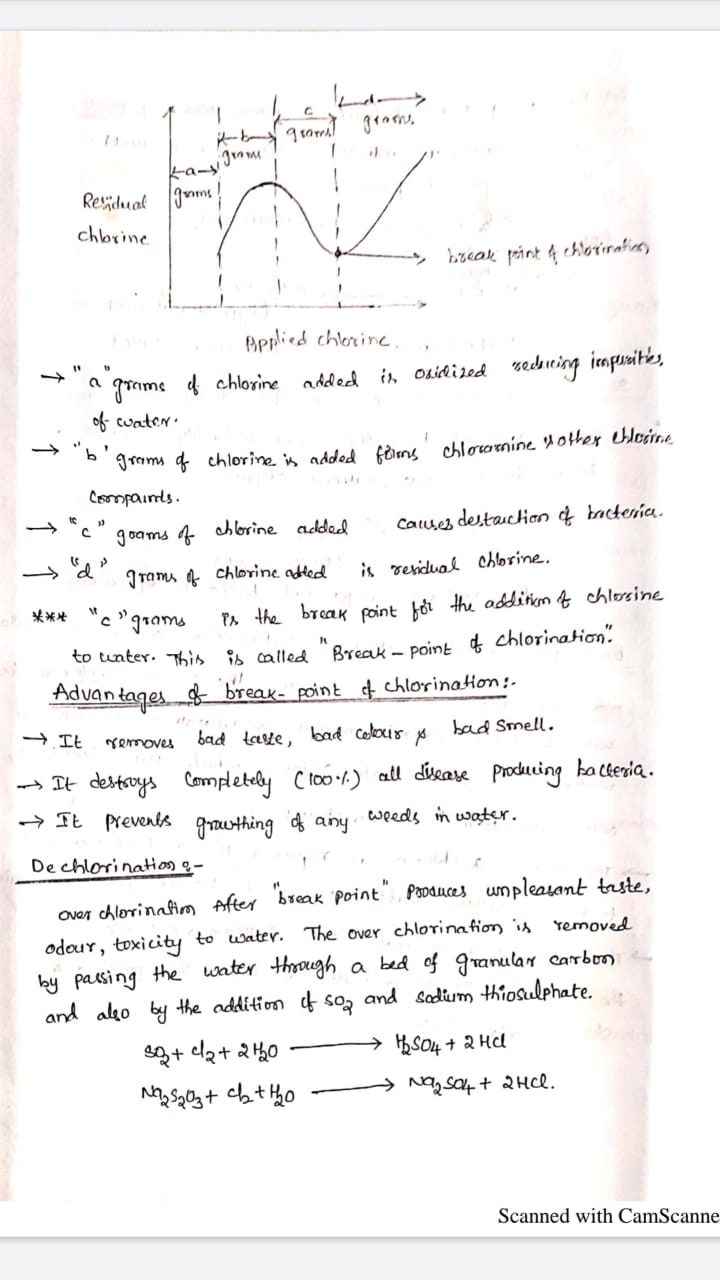 c
d
b
grams
grams.
grams
a
grams
Residual
chlorine
break point of chlorination
Applied chlorine.
→ "a" grams of chlorine added is oxidized reducing impurities
of water.
→ "b" grams of chlorine is added forms chloroamine & other chlorine
Compounds.
→ "c" grams of chlorine added causes destruction of bacteria.
→ "d" grams of chlorine added is residual chlorine.
*** "c" grams is the break point for the addition of chlorine
to water. This is called "Break-point of chlorination".
Advantages of break-point of chlorination :-
→ It removes bad taste, bad colour & bad smell.
→ It destroys Completely (100%) all disease producing bacteria.
→ It prevents growthing of any weeds in water.
Dechlorination :-
over chlorination After "break point" Produces unpleasant taste,
odour, toxicity to water. The over chlorination is removed
by passing the water through a bed of granular carbon
and also by the addition of SO2 and sodium thiosulphate.
SO2 + Cl2 + 2H2O → H2SO4 + 2HCl
Na2S2O3 + Cl2 + H2O → Na2SO4 + 2HCl.
Scanned with CamScanne